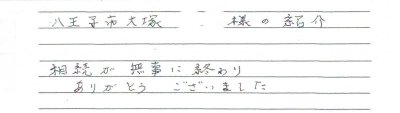 八王子市大塚　　　様の紹介
相続が無事に終わり
ありがとうございました